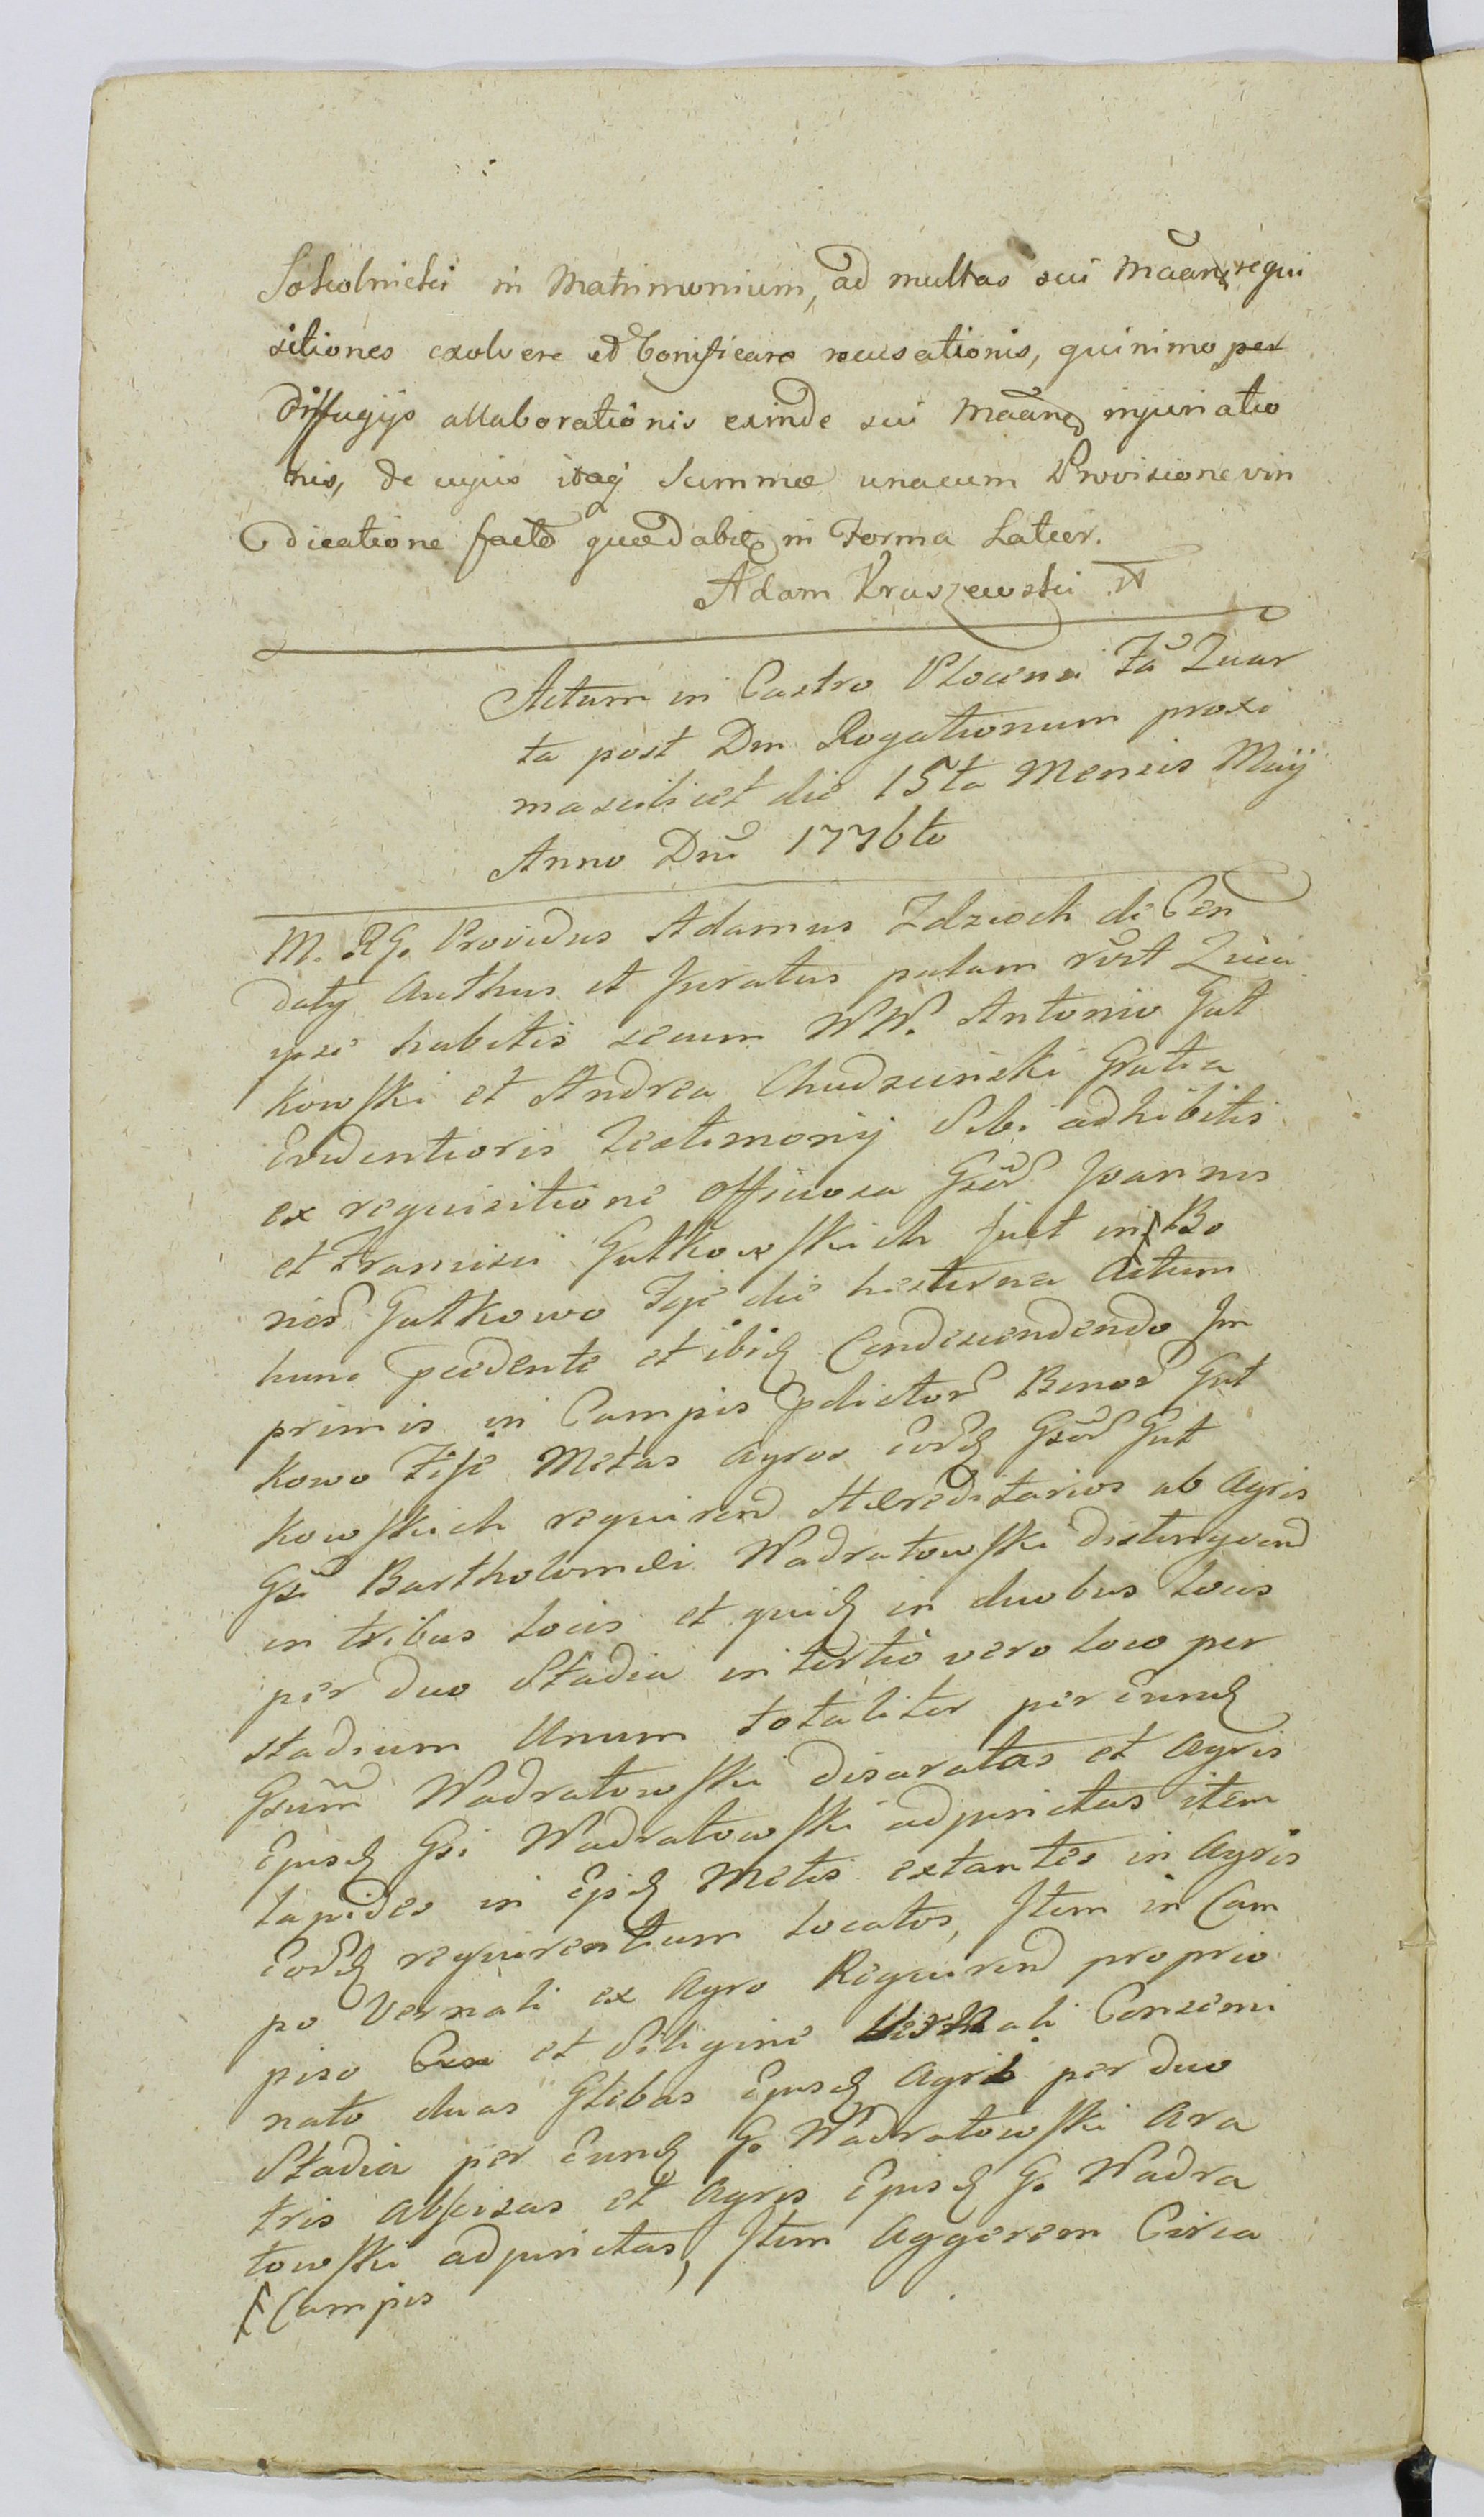 Sokolnicki in Matrimonium, ad multas sui Mãang requi
sitiones exolvere et bonificare recusationis, quinimo per
diffugijs allaborationis exinde sui Mãang injuriatio
nis, de cujus itaq Summæ unacum Provisione vin
dicatione facto quædabit in Forma Latier.
Adam Kraszewski
Actum in Castro Plocensi Fã Quar
ta post Dm Rogationum proxi
ma scilicet die 15ta Mensis Maij
Anno Dni 1776to
M. RG. Providus Adamus Zdzioch de Cen
daty Authus et Juratus palam rest Quia
ipse habitis secum WW. Antonio Gut
kowski et Andrea Chudzinski Gratia
Evidentioris Testimonij Sibi adhibitis
ex requisitione officiosa Gsor Joannis
et Francisci Gutkowskich fuit in Bo
nis Gutkowo Fije die hesterna Actum
hunc pcedente et ibid Condescendendo Im
primis in Campis pdictor Bonor Gut
kowo Fije Metas agros Eord Gsor Gut
kowskich requirend Hæreditarios ab Agris
Gsi Bartholomæi Wadratowski distingvend
in tribus locis et quid in duobus locis
per duo Stadia in tertio vero loco per
stadium Unum totaliter per eund
Gsum Wadratowski disaratas et Agris
Ejusd Gsi Wadratowski adjunctas item
lapides in Ejsd Metis extantes in Agris
Eord requirentium locatos, Item in Cam
po Vernali ex Agro Requirend proprio
piso et Siligine Vernali Consemi
nato duas Glebas Ejusd Agri per duo
Stadia per Eund G. Wadratowski Ara
tris abscisas et Agris Ejusd G. Wadra
towski adjunctas, Item Aggerem Circa
Campis